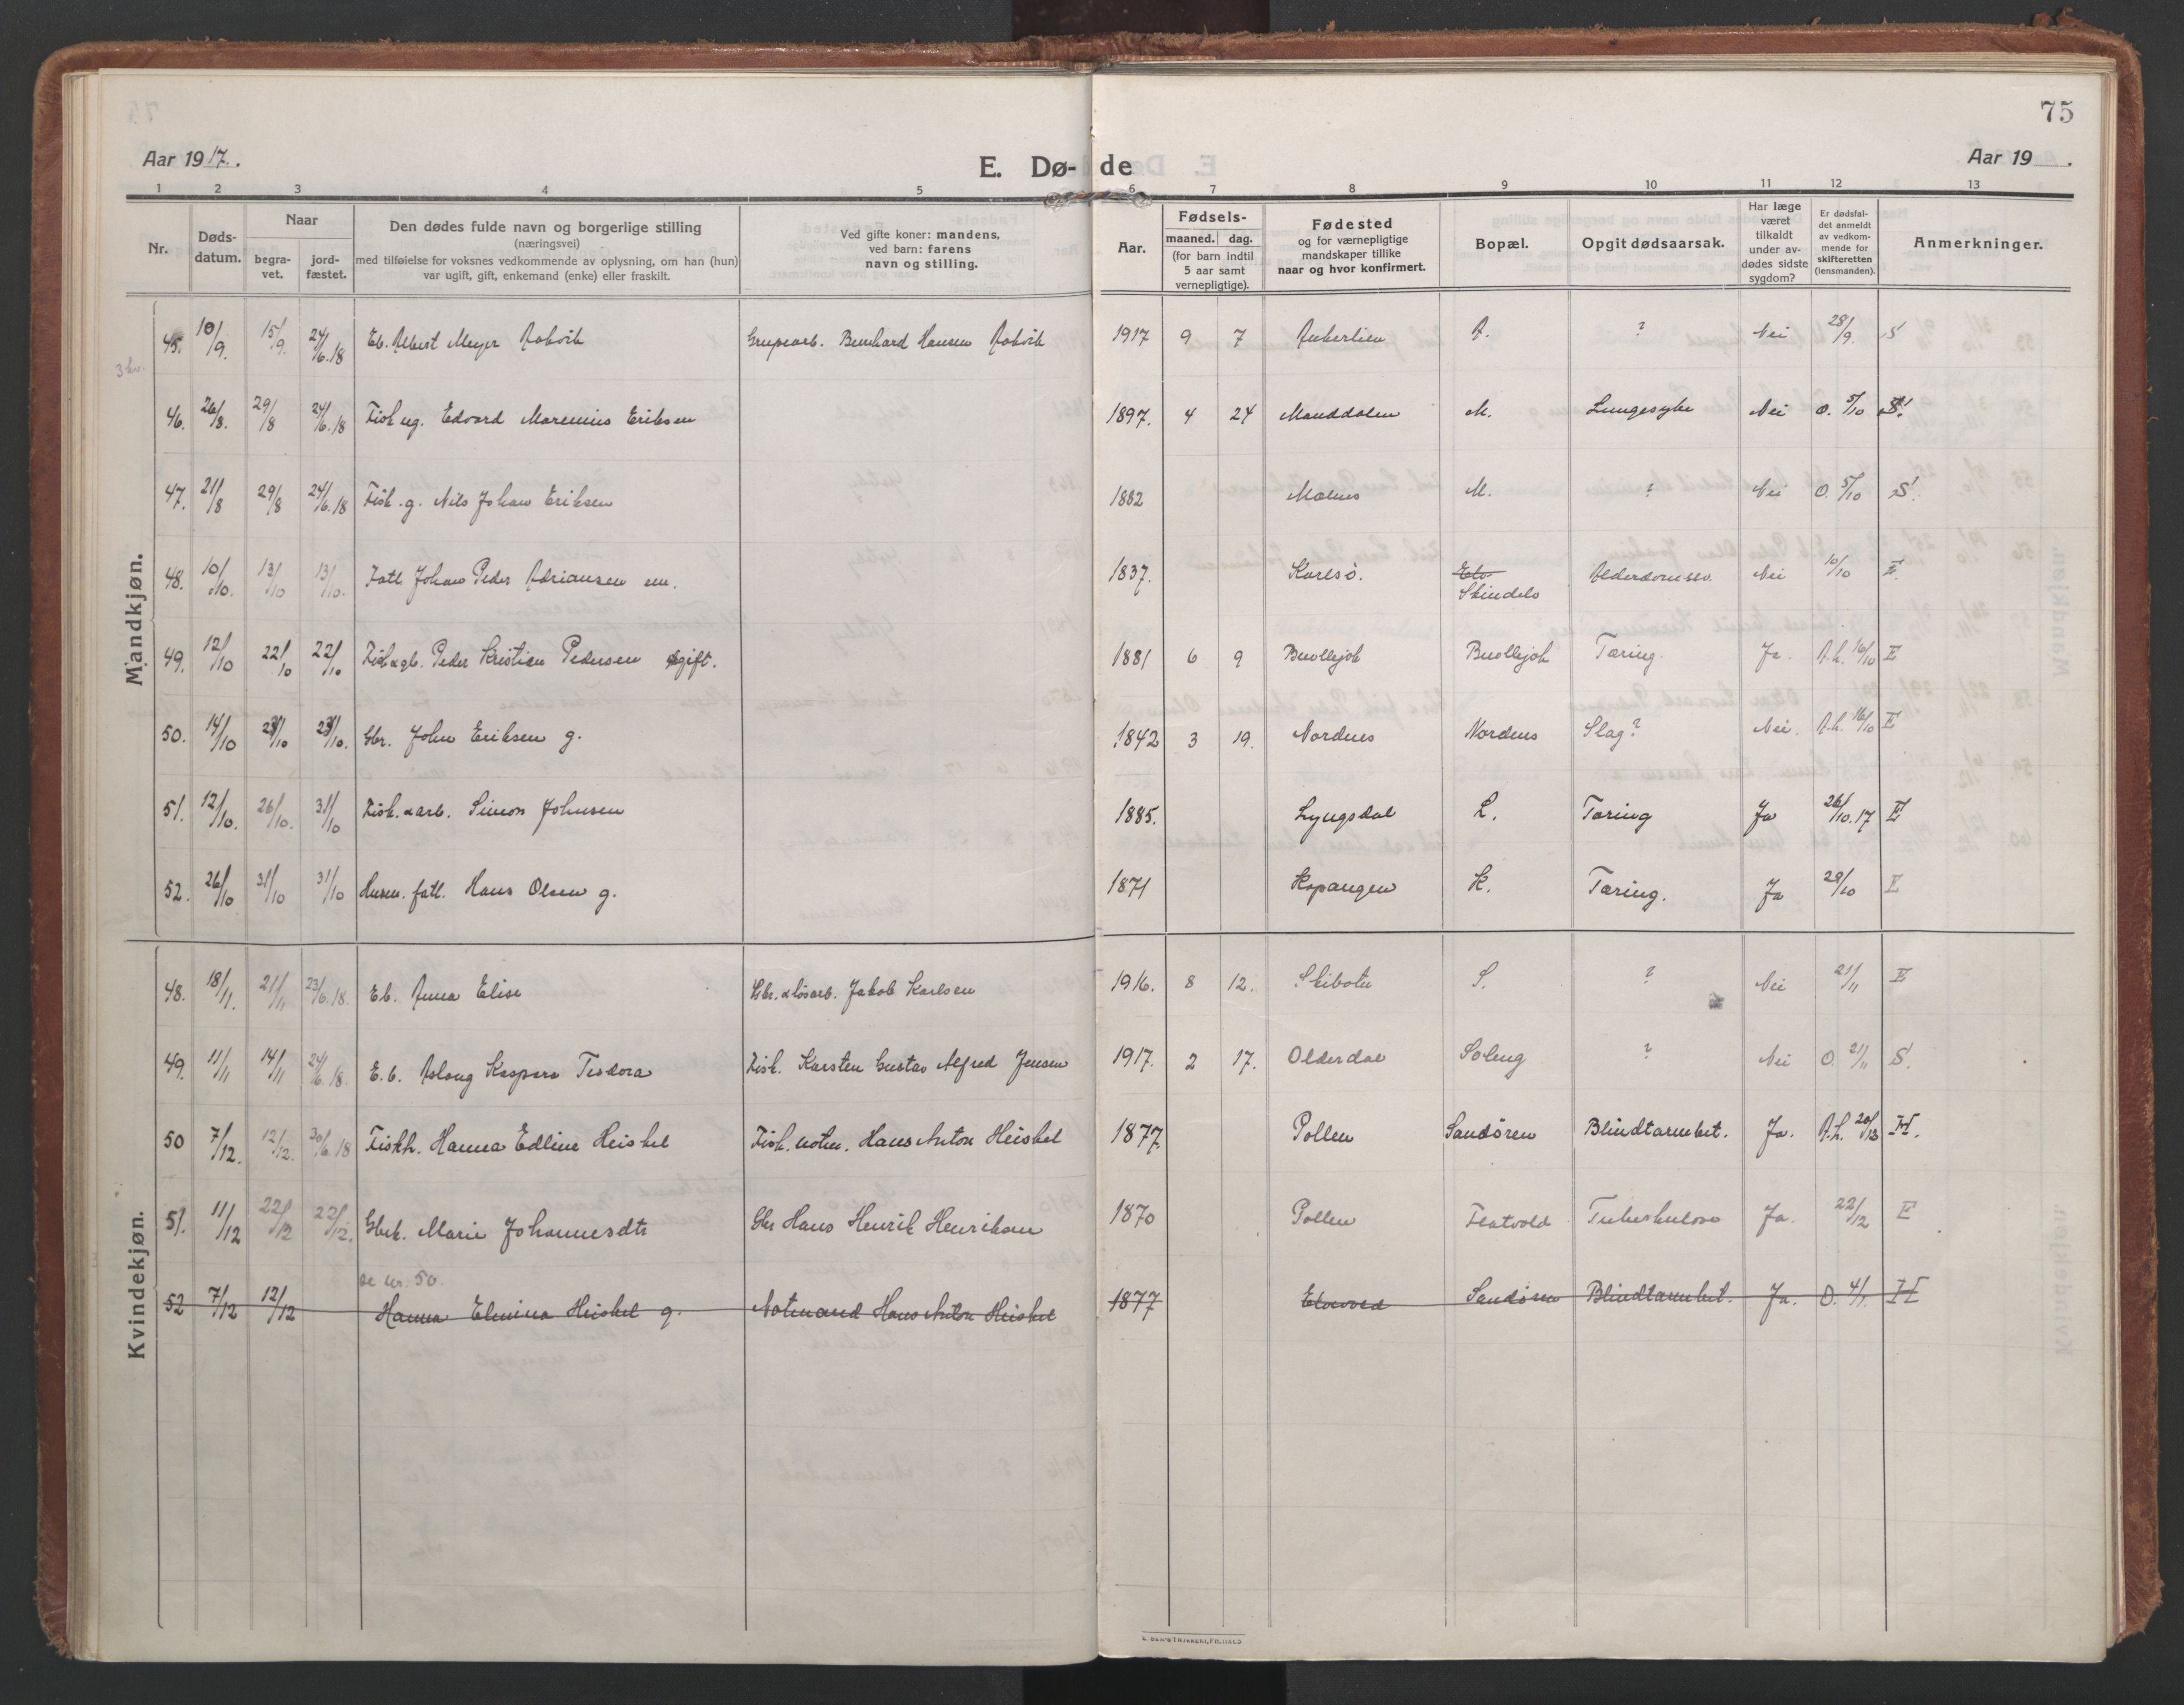 75
Aar 1917.
E. Dø-de
Aar 19 .
1 2 3 4 5 6 7 8 9 10 11 12 13
Nr.
Døds-
datum.
Naar
begra-
vet.
jord-
fæstet.
Den dødes fulde navn og borgerlige stilling
(næringsvei)
med tilføielse for voksnes vedkommende av oplysning, om han (hun)
var ugift, gift, enkemand (enke) eller fraskilt.
Ved gifte koner: mandens,
ved barn: farens
navn og stilling.
Aar.
Fødsels-
maaned. dag.
(for barn indtil
5 aar samt
vernepligtige).
Fødested
og for værnepligtige
mandskaper tillike
naar og hvor konfirmert.
Bopæl.
Opgit dødsaarsak.
Har læge
været
tilkaldt
under av-
dødes sidste
sygdom?
Er dødsfal-
det anmeldt
av vedkom-
mende for
skifteretten
(lensmanden).
Anmerkninger.
Mandkjøn.
45. 10/9. 15/9. 24/6.18 Eb. Albert Meyer Grupearb. Bernhard Hansen 1917 9 7 A. ? Nei 28/9. S
46. 26/8. 29/8 24/6.18 Fisk ug. Edvard Marenius Eriksen 1897. 4 24 Manddalen M. Lungesyke Nei O. 5/10 S.
47. 21/8 29/8 24/6.18 Fisk. g. Nils Johan Eriksen 1882 M. ? Nei O. 5/10 S.
48. 10/10. 13/10 13/10. Fatl Johan Peder Adriansen em. 1837. Karlsö. Skindelv Nei 10/10 E
49. 12/10 22/10 22/10 Peder Kristian Pedersen gift. 1881 6 9 Tæring. Ja. A.h. 16/10 E
50. 14/10 23/10 23/10. Gbr. John Eriksen g. 1842 3 19. Nordnes Nordnes Slag? Nei. A.h. 16/10 E
51. 12/10. 26/10. 31/10 Fisk. & arb. Simon Johnsen 1885. Lyngsdal L. Tæring Ja 26/10.17 E
52. 26/10 31/10 31/10 Husm. fatl. Hans Olsen g. 1871 Kopangen K. Tæring. Ja 29/10 E
Kvindekjøn.
48. 18/11. 21/11 23/6.18. Eb. Anna Elise Gbr. & løsarb. Jakob Karlsen 1916. 8 12. Skibotn S. ? Nei 21/11 E
49. 11/11 14/11 24/6.18. E.b. Aslaug Kaspara Teodora Fisk. Karsten Gustav Alfred Jensen 1917. 2 17. Olderdal Soleng ? Nei O. 21/11 S.
50 7/12. 12/12. 30/6.18 Fiskh. Hanna Edline Heiskel Fisk. notm. Hans Anton Heiskel 1877. Pollen Sandören Blindtarmbet. Ja. A.h. 20/12 H.
51. 11/12 22/12 22/12. Gbrk. Marie Johannesdtr Gbr Hans Henrik Henriksen 1870 Pollen Flatvold Tuberkulose Ja. 22/12 E
se nr. 50.
52 7/12 12/12 Hanna Elmina Heiskel g. Notmand Hans Anton Heiskel 1877 Elvevold Sandören Blindtarmbet. Ja. O. 4/1. H